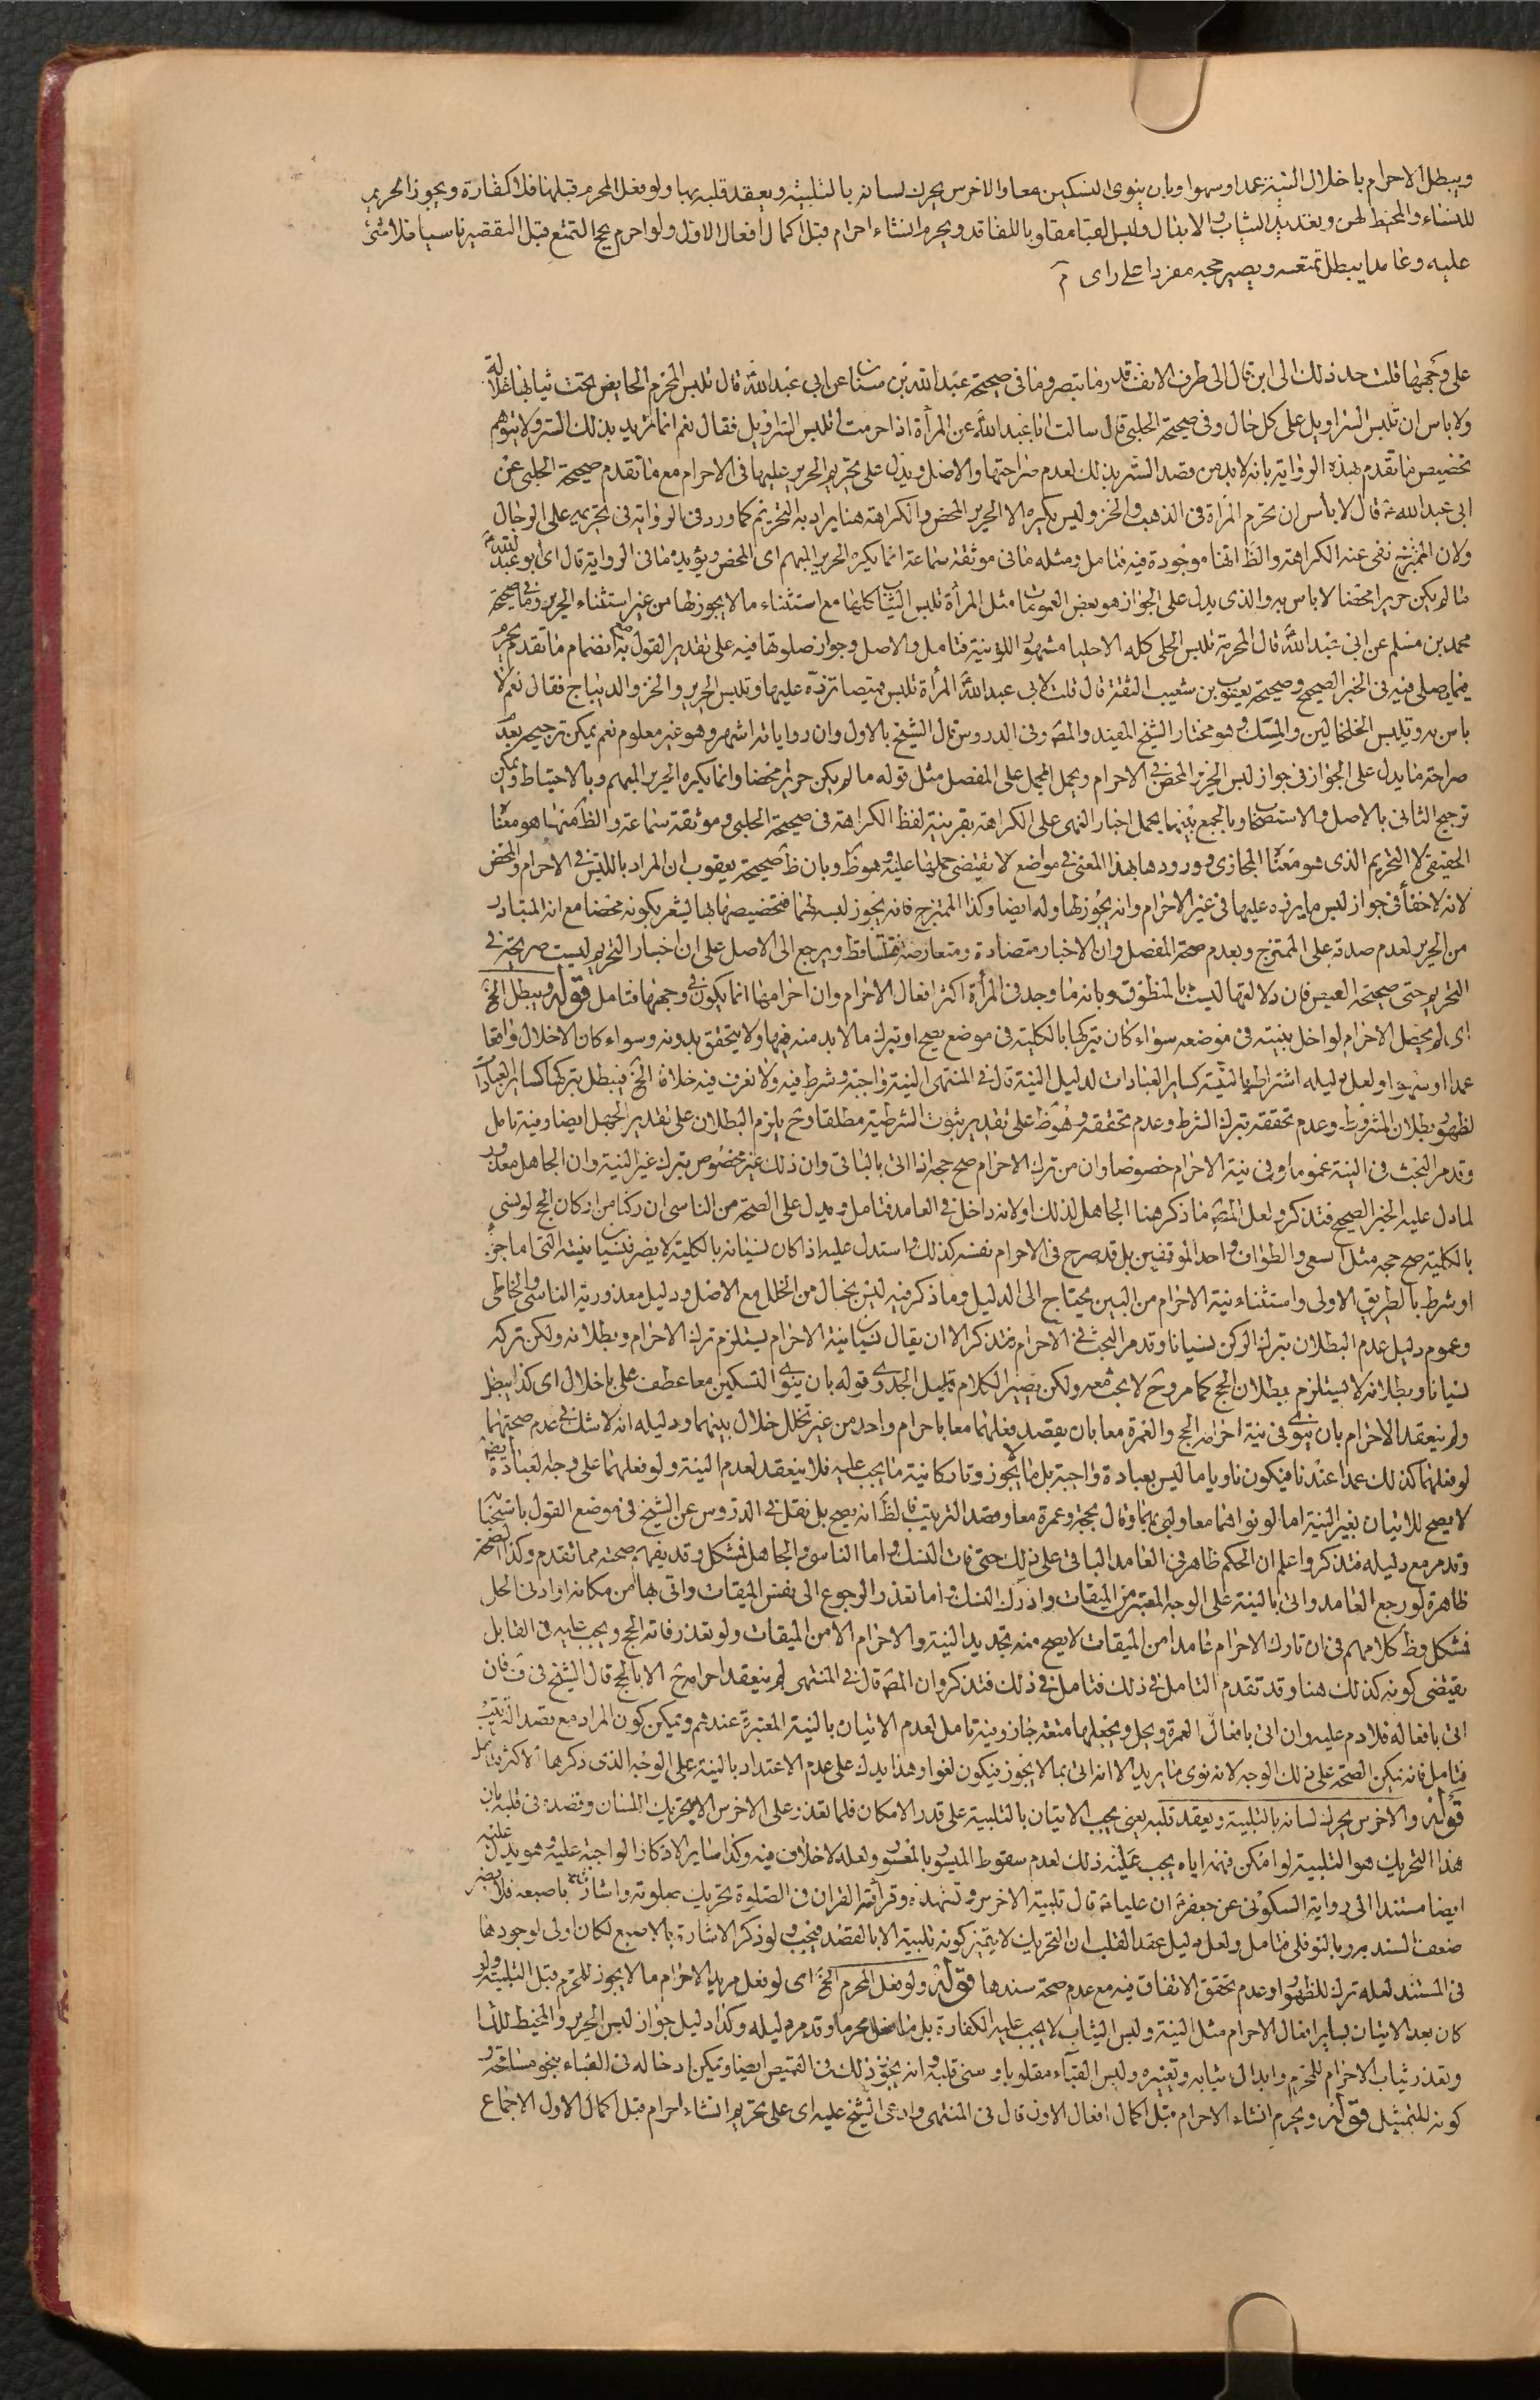 ويبطل الاحرام باخلال النية عمدا وسهوا وبان ينوى النسكين معا والاخرس يحرك لسانه بالتلبية ويعقد قلبه بها ولو فعل المحرم قبلها فلا كفارة ويجوز الحرير
للنساء والمخيط لهن وتعديد الثياب والابدال ولبس القبا مقلوبا للفاقد ويحرم انشاء احرام قبل اكمال افعال الاول ولو احرم بحج التمتع قبل التقصير ناسيا فلا شئ
عليه وعامدا يبطل تمتعه ويصير حجه مفردا على راى م
على وجهها قلت حد ذلك الى اين قال الى طرف الانف قدر ما تبصر وما فى صحيحة عبد الله بن سنان عن ابى عبد الله قال تلبس المحرم الحايض تحت ثيابها غلالة
ولا باس ان تلبس السراويل على كل حال وفى صحيحة الحلبى قال سالت ابا عبد الله عن المرأة اذا حرمت اتلبس السراويل فقال نعم انما تريد بذلك الستر ولا يتوهم
تخصيص ما تقدم بهذه الرواية بانه لابد من قصد الستر بذلك لعدم صراحتها والاصل ويدل على تحريم الحرير عليها فى الاحرام مع ما تقدم صحيحة الحلبى عن
ابى عبد الله قال لا بأس ان تحرم المرأة فى الذهب والخز وليس يكره الا الحرير المحض والكراهة هنا يراد به التحريم كما ورد فى الرواية فى تحريمه على الرجال
ولان الممتزج نفى عنه الكراهة والظ انها موجودة فيه فتامل ومثله ما فى موثقة سماعة انما يكره الحرير المبهم اى المحض ويؤيده ما فى الرواية قال اى ابو عبد الله
ما لم يكن حريرا محضا لا باس به والذى يدل على الجواز هو بعض العمومات مثل المرأة تلبس الثياب كلها مع استثناء ما لا يجوز لها من غير استثناء الحرير وما فى صحيحة
محمد بن مسلم عن ابى عبد الله قال المحرمة تلبس الحلى كله الا حليا مشهورا للزينة فتامل والاصل وجواز صلوتها فيه على تقدير القول به مع انضمام ما تقدم يحرم
فيما يصلى فيه فى الخبر الصحيح وصحيحة يعقوب بن شعيب الثقة قال قلت لابى عبد الله المرأة تلبس قميصا تزره عليها وتلبس الحرير والخز والديباج فقال نعم لا
باس به وتلبس الخلخالين والمسك وهو مختار الشيخ المفيد والمصر وفى الدروس قال الشيخ بالاول وان رواياته اشهر وهو غير معلوم نعم يمكن ترجيحه بعد
صراحة ما يدل على الجواز فى جواز لبس الحرير المحض فى الاحرام ويحمل المجمل على المفصل مثل قوله ما لم يكن حريرا محضا وانما يكره الحرير المبهم وبالاحتياط ويمكن
ترجيح الثانى بالاصل والاستصحاب وبالجمع بينها بحمل اخبار النهى على الكراهة بقرينة لفظ الكراهة فى صحيحة الحلبى وموثقة سماعة والظ منها هو معنا
الحقيقى لا التحريم الذى هو معنا المجازى وورودها بهذا المعنى فى مواضع لا يقتضى حملها عليه وهو ظ وبان ظ صحيحة يعقوب ان المراد باللبس فى الاحرام والمحض
لانه لا خفأ فى جواز لبس ما يزره عليها فى غير الاحرام وانه يجوز لها وله ايضا وكذا الممتزج فانه يجوز لبسه لهما فتخصيصها بها ليشعر بكونه محضا مع انه المتبادر
من الحرير لعدم صدقه على الممتزج وبعدم صحة المفصل وان الاخبار متضادة ومتعارضة فتساقط ويرجع الى الاصل على ان اخبار التحريم ليست صريحة فى
التحريم حتى صحيحة العيص فان دلالتها ليست بالمنطوق وبانه ما وجد فى المرأة اكثر افعال الاحرام وان احرامها انما يكون فى وجهها فتامل قوله ويبطل الخ
اى لم يحصل الاحرام لو اخل بنيته فى موضعه سواء كان تركها بالكلية فى موضع يصح او بترك ما لابد منه فيها ولا يتحقق بدونه وسواء كان الاخلال واقعا
عمدا او سهوا ولعل دليله اشتراطه بالنية كساير العبادات لدليل النية قال فى المنتهى النية واجبة وشرط فيه ولا نعرف فيه خلافا الخ فيبطل بتركها كساير العبادات
لظهور بطلان المشروط وعدم تحققه بترك الشرط وعدم تحققه وهو ظ على تقدير ثبوت الشرطية مطلقا وح يلزم البطلان على تقدير الجهل ايضا وفيه تامل
وقد مر البحث فى النية عموما وفى نية الاحرام خصوصا وان من ترك الاحرام صح حجه اذا اتى بالباقى وان ذلك غير مخصوص بترك غير النية وان الجاهل معذور
لما دل عليه الخبر الصحيح فتذكر ولعل المصر ما ذكر هنا الجاهل لذلك اولانه داخل فى العامد فتامل ويدل على الصحة من الناسى ان ركنا من اركان الحج لو نسى
بالكلية صح حجه مثل السعى والطواف واحد الموقفين بل قد صرح فى الاحرام نفسه كذلك واستدل عليه اذا كان نسيانه بالكلية لا يضر فنسيان نيته التى اما جزء
او شرط بالطريق الاولى واستثناء نية الاحرام من البين يحتاج الى الدليل وما ذكر فيه ليس بخال من الخلل مع الاصل ودليل معذورية الناسى والخاطى
وعموم دليل عدم البطلان بترك الركن نسيانا وقد مر البحث فى الاحرام فتذكر الا ان يقال نسيان نية الاحرام يستلزم ترك الاحرام وبطلانه ولكن تركه
نسيانا وبطلانه لا يستلزم بطلان الحج كما مر وح لا بحث معه ولكن يصير الكلام قليل الجدوى وقوله بان ينوى النسكين معا عطف على باخلال اى كذا يبطل
ولم ينعقد الاحرام بان ينوى فى نية احرامه الحج والعمرة معا بان يقصد فعلهما معا باحرام واحد من غير تخلل خلال بينهما ودليله انه لا شك فى عدم صحتهما
لو فعلهما كذلك عمدا عندنا فيكون ناويا ما ليس بعبادة واجبة بل ما لا يجوز وتاركا نية ما يجب عليه فلا ينعقد لعدم النية ولو فعلهما على وجه العبادة ايضا
لا يصح للاتيان بغير النية اما لو نواهما معا ولبى بهما وقال بحجة وعمرة معا وقصد الترتيب فالظ انه يصح بل نقل فى الدروس عن الشيخ فى موضع القول باستحبابه
وقد مر مع دليله فتذكر واعلم ان الحكم ظاهر فى العامد الباقى على ذلك حتى فات النسك واما الناسى والجاهل فمشكل وقد يفهم صحته مما تقدم وكذا الصحة
ظاهرة لو رجع العامد واتى بالنية على الوجه المعتبر من الميقات وادرك النسك واما تعذر الرجوع الى نفس الميقات واتى بها من مكانه او ادنى الحل
فمشكل وظ كلامهم فى ان تارك الاحرام عامدا من الميقات لا يصح منه تجديد النية والاحرام الا من الميقات ولو تعذر فاته الحج ويجب عليه فى القابل
يقتضى كونه كذلك هنا وقد تقدم التامل فى ذلك فتامل فى ذلك فتذكر وان المصر قال فى المنتهى لم ينعقد احرامه ح الا بالحج قال الشيخ فى ف فان
اتى بافعاله فلا دم عليه وان اتى بافعال العمرة ويحل ويجعلها متعة جاز وفيه تامل لعدم الاتيان بالنية المعتبرة عندهم ويمكن كون المراد مع قصد الترتيب
فتامل فانه يمكن الصحة على ذلك الوجه لانه نوى ما يريد الا انه اتى بما لا يجوز فيكون لغوا وهذا يدل على عدم الاعتداد بالنية على الوجه الذى ذكرها الاكثر فتامل
قوله والاخرس يحرك لسانه بالتلبية ويعقد قلبه يعنى يجب الاتيان بالتلبية على قدر الامكان فلما تعذر على الاخرس الا بتحريك اللسان وقصده فى قلبه بان
هذا التحريك هو التلبية لو امكن فهمه اياه يجب عليه ذلك لعدم سقوط الميسور بالمعسور ولعله لا خلاف فيه وكذا ساير الاذكار الواجبة عليه وهو يدل عليه
ايضا مستندا الى رواية السكونى عن جعفر ان عليا قال تلبية الاخرس وتشهده وقرأته القران فى الصلوة تحريك بصوته واشارته باصبعه فلا يضر
ضعف السند به وبالنوفلى فتامل ولعل دليل عقد القلب ان التحريك لا يتميز كونه تلبية الا بالقصد فيجب ولو ذكر الاشارة بالاصبع لكان اولى لوجودها
فى المستند لعله ترك للظهور او عدم تحقق الاتفاق فيه مع عدم صحة سندها قوله ولو فعل المحرم الخ اى لو فعل مريد الاحرام ما لا يجوز للمحرم قبل التلبية ولو
كان بعد الاتيان بساير افعال الاحرام مثل النية ولبس الثياب لا يجب عليه الكفارة بل ما فعل محرما وقد مر دليله وكذا دليل جواز لبس الحرير والمخيط للنسا
وتعدد ثياب الاحرام للمحرم وابدال ثيابه وتغيره ولبس القباء مقلوبا ومعنى قلبه وانه يجوز ذلك فى القميص ايضا ويمكن ادخاله فى القباء بنحو مسامحة و
كونه للتمثيل قوله ويحرم انشاء الاحرام قبل اكمال افعال الاول قال فى المنتهى وادعى الشيخ عليه اى على تحريم انشاء احرام قبل اكمال الاول الاجماع